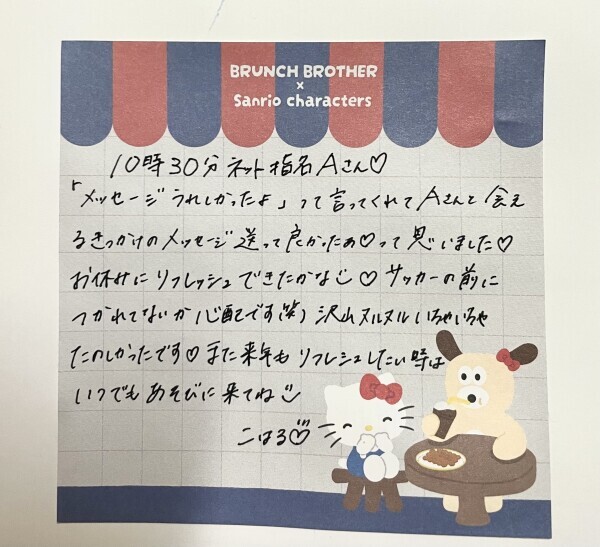 BRUNCH BROTHER
×
Sanrio characters
10時30分 ネット指名 Aさん♡
「メッセージうれしかったよ」って言ってくれてAさんと会え
るきっかけのメッセージ送って良かったぁ♡って思いました♡
お休みにリフレッシュできたかな♡サッカーの前に
つかれてないか心配です(笑)沢山ヌルヌルいちゃいちゃ
たのしかったです♡また来年もリフレシュしたい時は
いつでもあそびに来てね
こはる♡